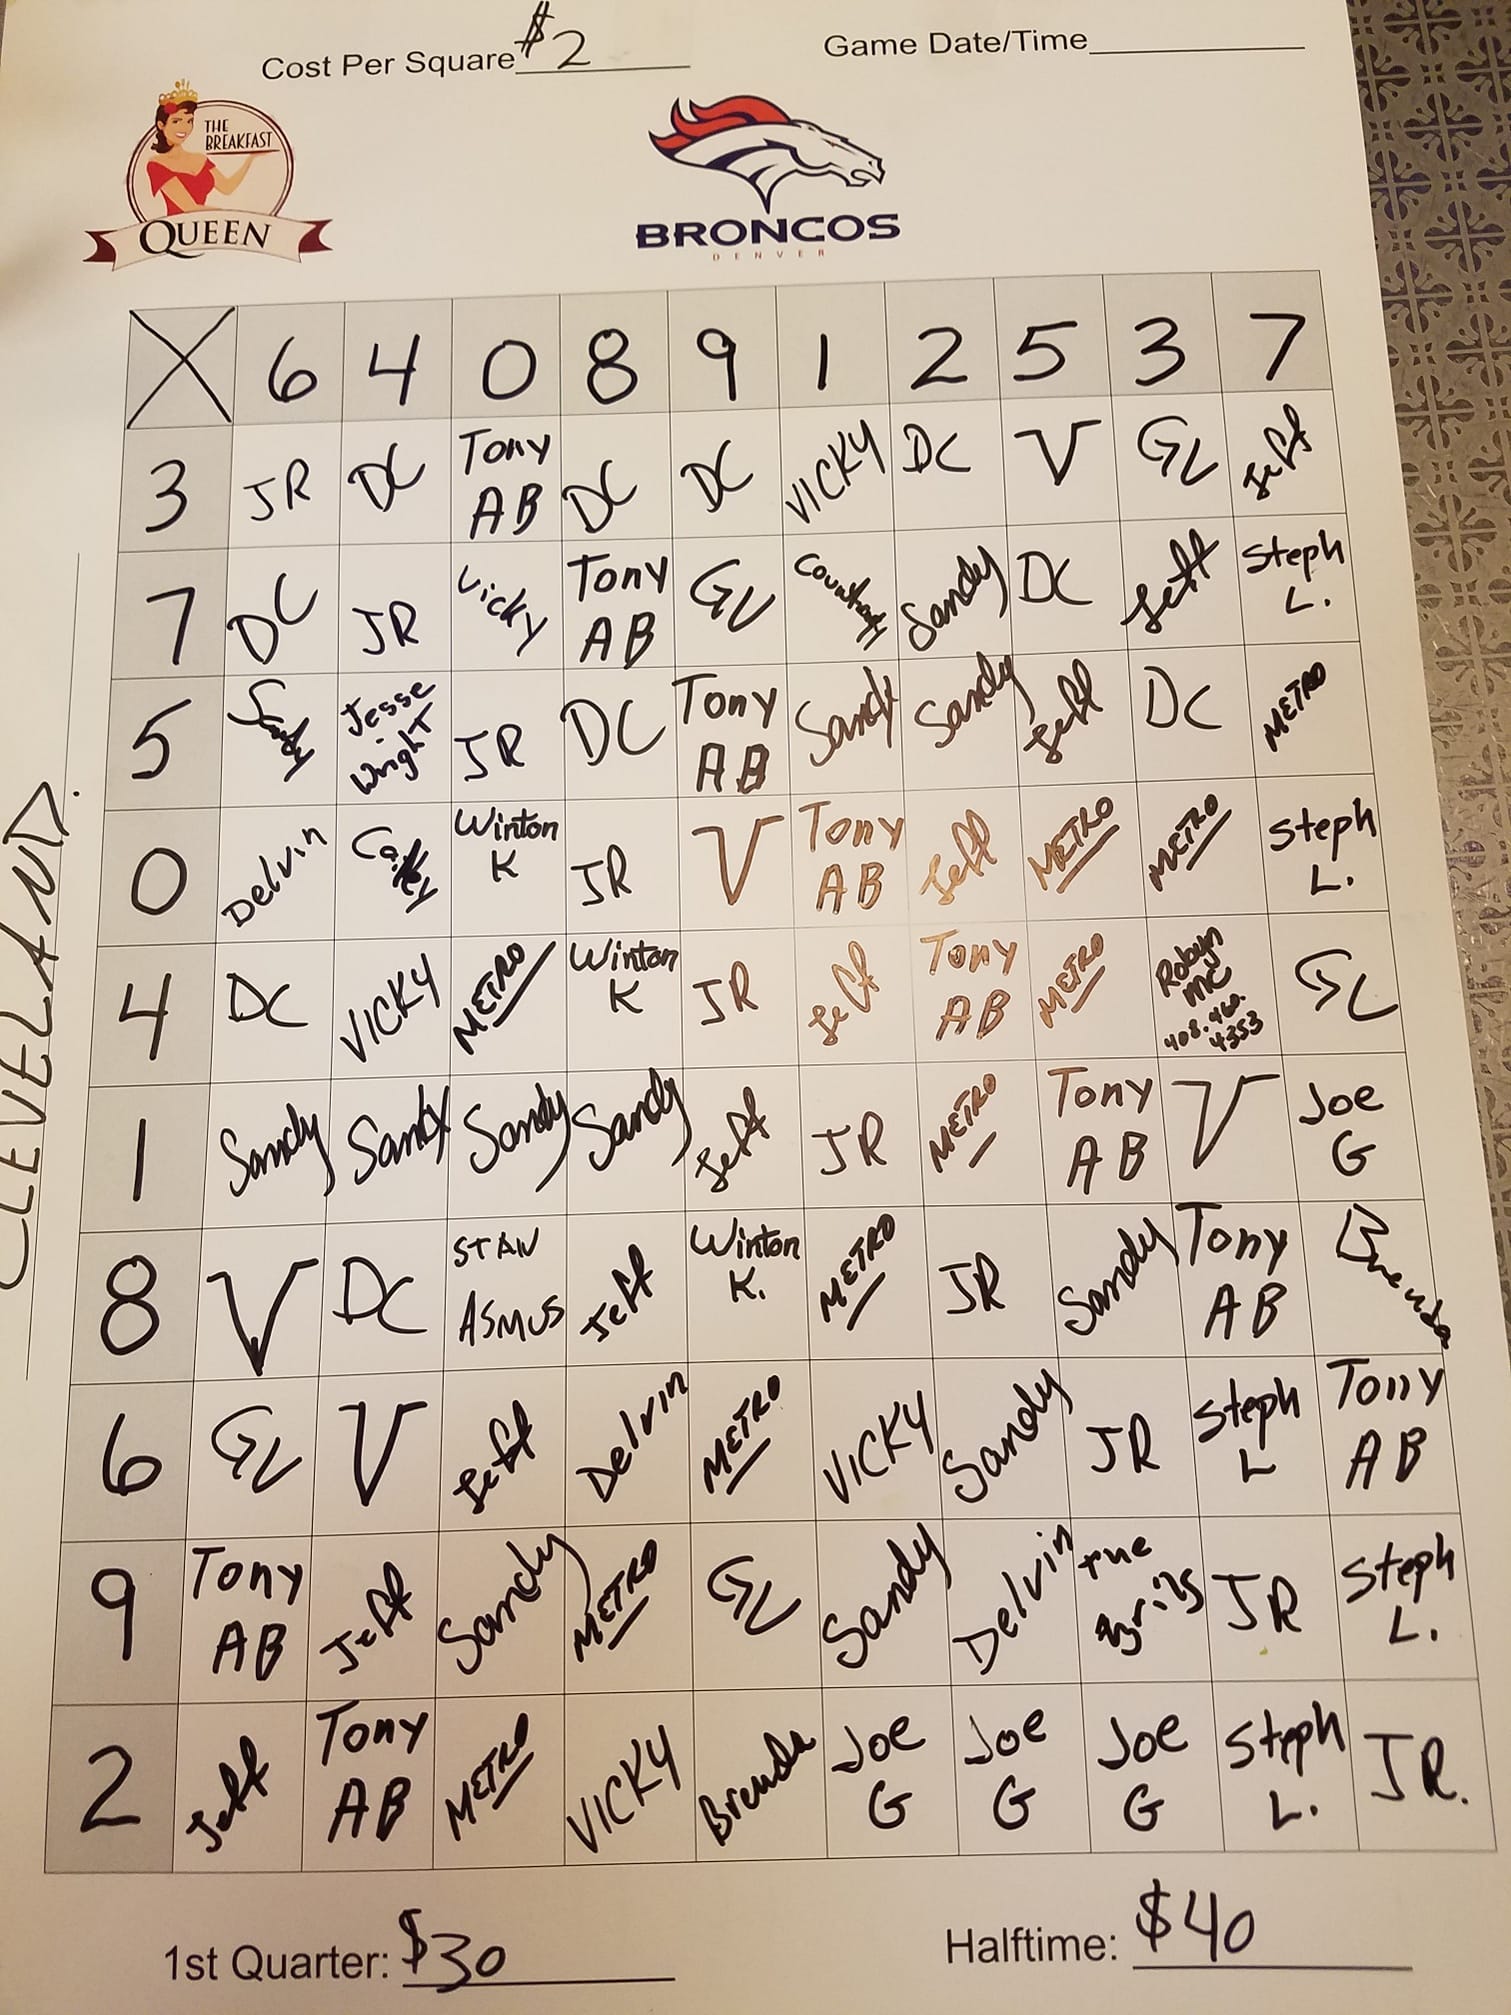 Cost Per Square $2
Game Date/Time
THE
BREAKFAST
QUEEN
BRONCOS
DENVER
CLEVELAND.
X 6 4 0 8 9 1 2 5 3 7
3 JR DC Tony AB DC DC VICKY DC V GV Jeff
7 DC JR Vicky Tony AB GV Sandy DC Jeff Steph L.
5 Sandy Jesse Wright JR DC Tony AB Sandy Sandy Jeff DC METRO
0 Delvin Winton K JR V Tony AB Jeff METRO METRO Steph L.
4 DC VICKY METRO Winton K JR Jeff Tony AB METRO Robyn MC 408.460.4353 GV
1 Sandy Sandy Sandy Sandy Jeff JR METRO Tony AB V Joe G
8 V DC STAN ASMUS Jeff Winton K. METRO JR Sandy Tony AB Brenda
6 GV V Jeff Delvin METRO VICKY Sandy JR Steph L Tony AB
9 Tony AB Jeff Sandy METRO GV Sandy Delvin JR Steph L.
2 Jeff Tony AB METRO VICKY Brenda Joe G Joe G Joe G Steph L. JR.
1st Quarter: $30
Halftime: $40